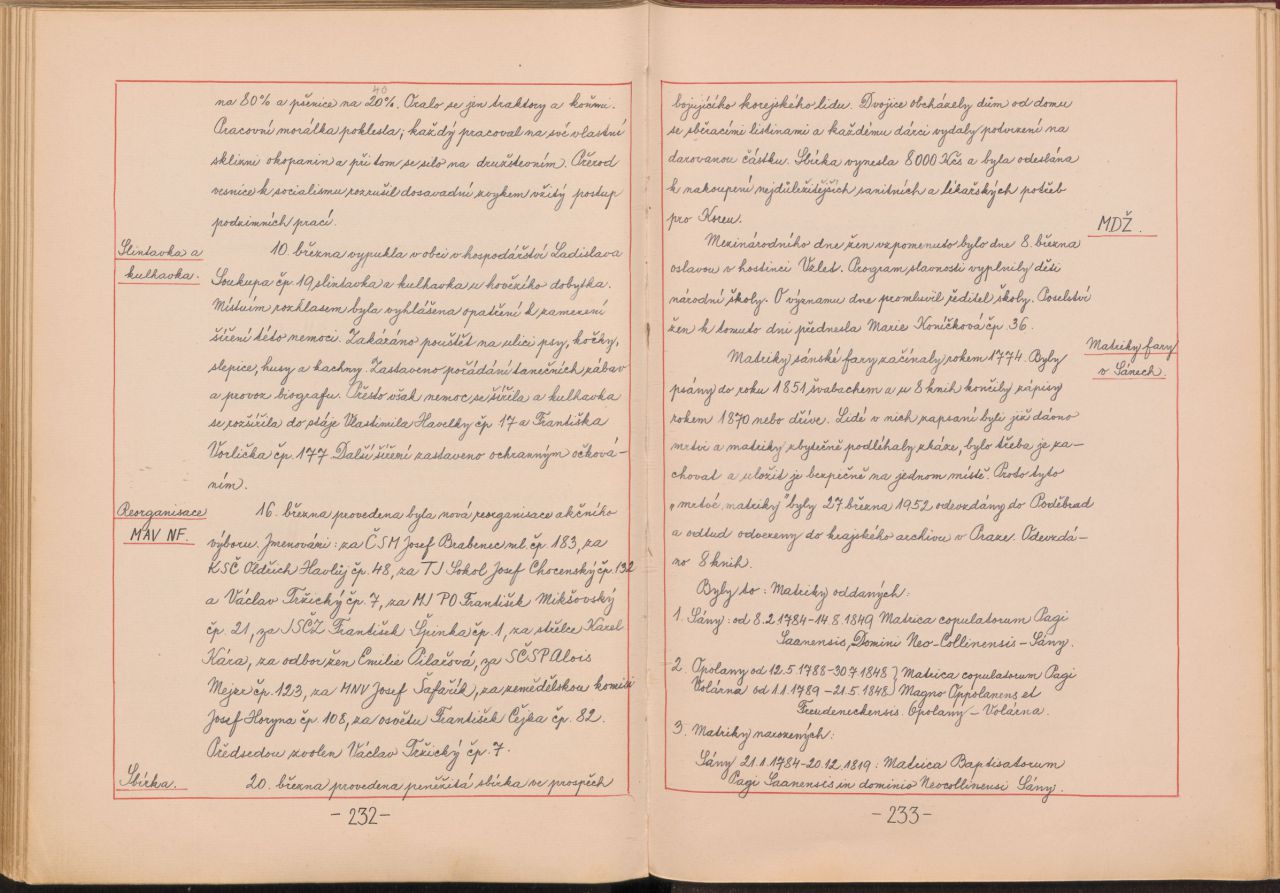 40
na 80% a pšenice na 20%. Oralo se jen traktory a koňmi.
Pracovní morálka poklesla; každý pracoval na své vlastní
sklizni okopanin a při tom se silo na družstevním. Přerod
vesnice k socialismu rozrušil dosavadní zvykem vžitý postup
podzimních prací.
Slintavka a
kulhavka.
10. března vypukla v obci v hospodářství Ladislava
Soukupa čp 19 slintavka a kulhavka u hovězího dobytka.
Místním rozhlasem byla vyhlášena opatření k zamezení
šíření této nemoci. Zakázáno pouštět na ulici psy, kočky,
slepice, husy a kachny. Zastaveno pořádání tanečních zábav
a provoz biografu. Přesto však nemoc se šířila a kulhavka
se rozšířila do stáje Vlastimila Havelky čp 17 a Františka
Vorlička čp. 177. Další šíření zastaveno ochranným očková-
ním.
Reorganisace
MAV NF.
16. března provedena byla nová reorganisace akčního
výboru. Jmenováni: za ČSM Josef Brabenec ml. čp. 183, za
KSČ Oldřich Havlůj čp. 48, za TJ Sokol Josef Chocenský čp. 132
a Václav Tržický čp. 7, za MJ PO František Mikšovský
čp. 21, za JSČZ František Špinka čp. 1, za střelce Karel
Kára, za odbor žen Emilie Pilařová, za SČSP Alois
Mejzr čp. 123, za MNV Josef Šafařík, za zemědělskou komisi
Josef Horyna čp. 108, za osvětu František Čejka čp. 82.
Předsedou zvolen Václav Tržický čp. 7.
Sbírka.
20. března provedena peněžitá sbírka ve prospěch
- 232 -
bojujícího korejského lidu. Dvojice obcházely dům od domu
se sběracími listinami a každému dárci vydaly potvrzení na
darovanou částku. Sbírka vynesla 8000 Kčs a byla odeslána
k nakoupení nejdůležitějších sanitních a lékařských potřeb
pro Koreu.
MDŽ.
Mezinárodního dne žen vzpomenuto bylo dne 8. března
oslavou v hostinci Válet. Program slavnosti vyplnily děti
národní školy. O významu dne promluvil ředitel školy. Poselství
žen k tomuto dni přednesla Marie Koníčková čp. 36.
Matriky fary
v Sánech.
Matriky sánské fary začínaly rokem 1774. Byly
psány do roku 1851 švabachem a u 8 knih končily zápisy
rokem 1870 nebo dříve. Lidé v nich zapsaní byli již dávno
mrtvi a matriky zbytečně podléhaly zkáze, bylo třeba je za-
chovat a uložit je bezpečně na jednom místě. Proto tyto
„mrtvé matriky" byly 27. března 1952 odevzdány do Poděbrad
a odtud odvezeny do krajského archivu v Praze. Odevzdá-
no 8 knih.
Byly to: Matriky oddaných:
1. Sány: od 8.2.1784-14.8.1849 Matrica copulatorum Pagi
Saanensis, Domini Neo-Collinensis - Sány.
2. Opolany od 12.5.1788-30.7.1848 } Matrica copulatorum Pagi
Volárna od 1.1.1789-21.5.1848 } Magno Oppolanens et
Freudeneckensis. Opolany - Volárna.
3. Matriky narozených:
Sány 21.1.1784-20.12.1819: Matrica Baptisatorum
Pagi Saanensis in dominio Neocollinensi Sány.
- 233 -